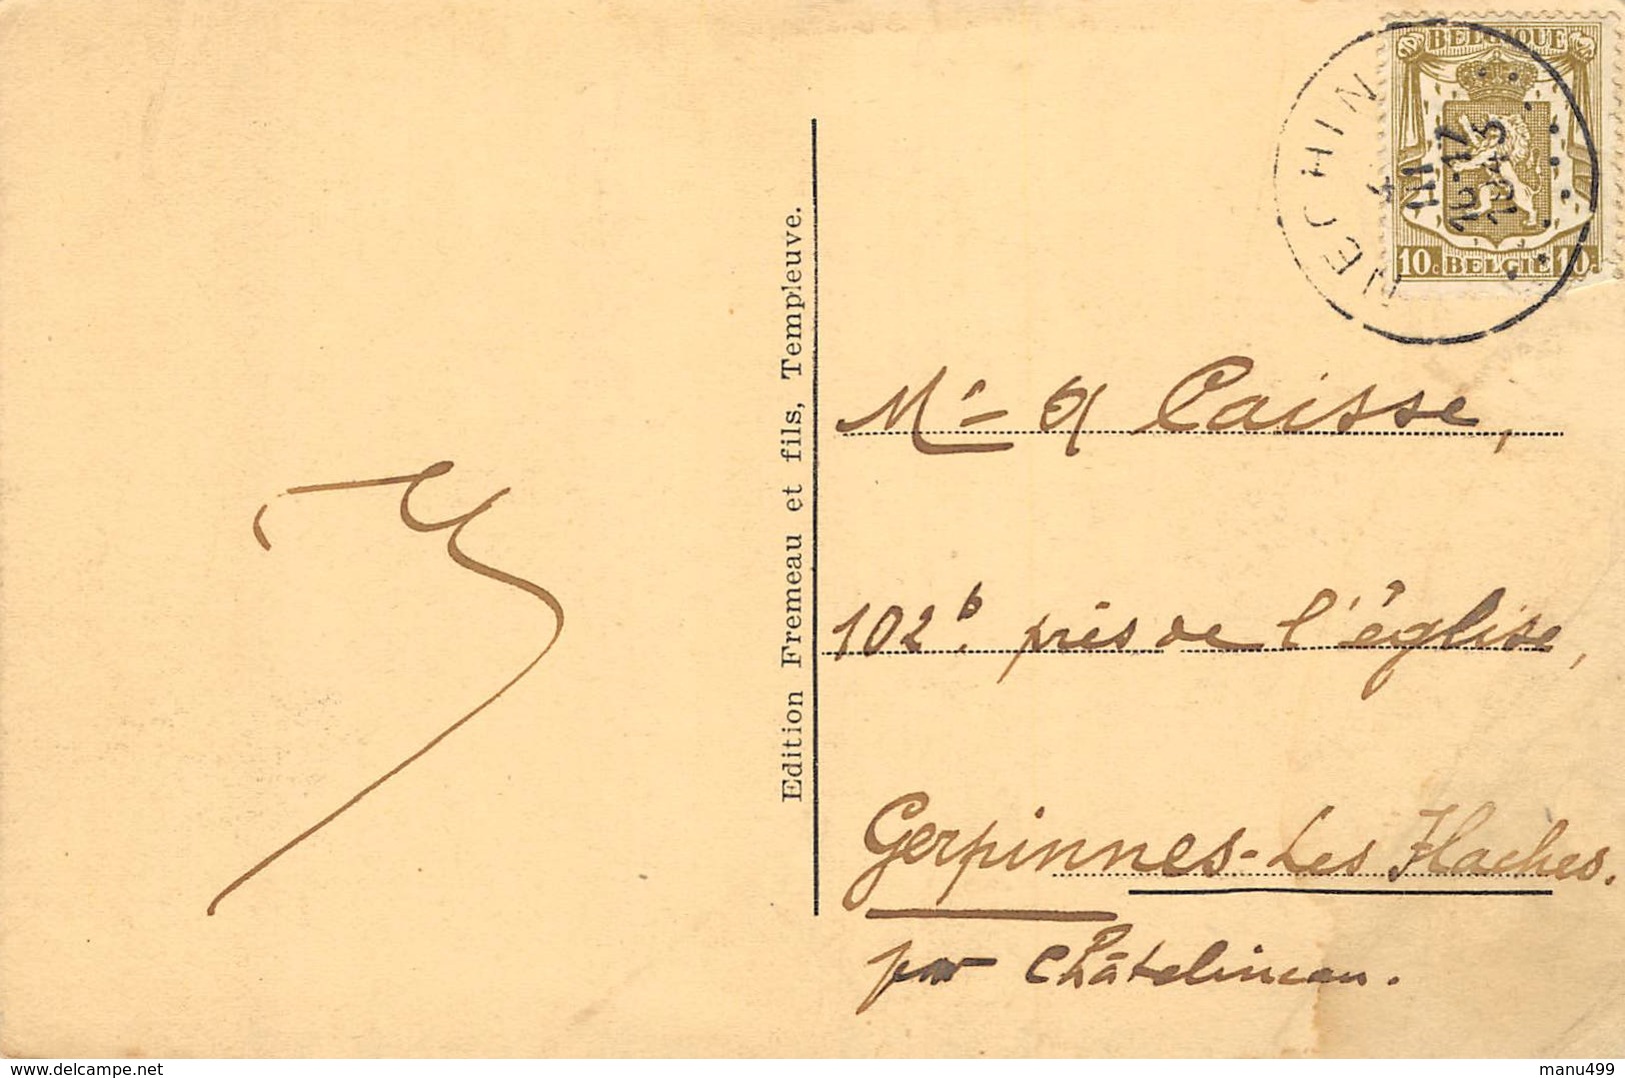 BELGIQUE
10c BELGIE 10c
NECHIN
4
III
16-17
1945
Edition Fremeau et fils, Templeuve.
Mr & Caisse,
102b. près de l'église,
Gerpinnes-Les Flaches.
par Châtelineau.
delcampe.net
manu499